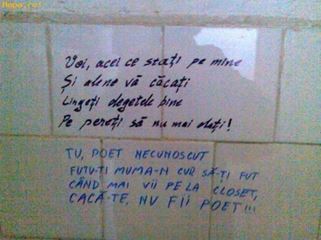 Hopa.ro!
Voi, acei ce stați pe mine
Și alene vă căcați
Lingeți degetele bine
Pe pereți să nu mai dați!
TU, POET NECUNOSCUT
FUTU-TI MUMA-N CUR SĂ-ȚI FUT
CÂND MAI VII PE LA CLOSET,
CACĂ-TE, NU FII POET!!!